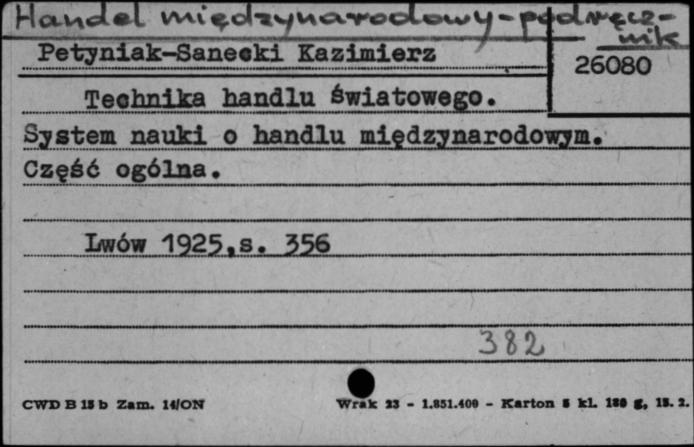 Handel międzynarodowy-podręcz-
nik
Petyniak-Sanecki Kazimierz
26080
Technika handlu światowego.
System nauki o handlu międzynarodowym.
Część ogólna.
Lwów 1925,s. 356
382
CWD B 15 b Zam. 14/ON
Wrak 23 - 1.851.400 - Karton kl. 180 g,